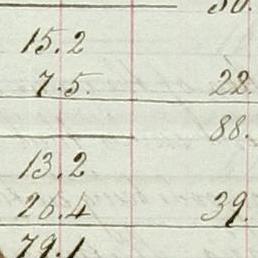 30.
15.2
7.5. 22.
88.
13.2
26.4 39.
79.1